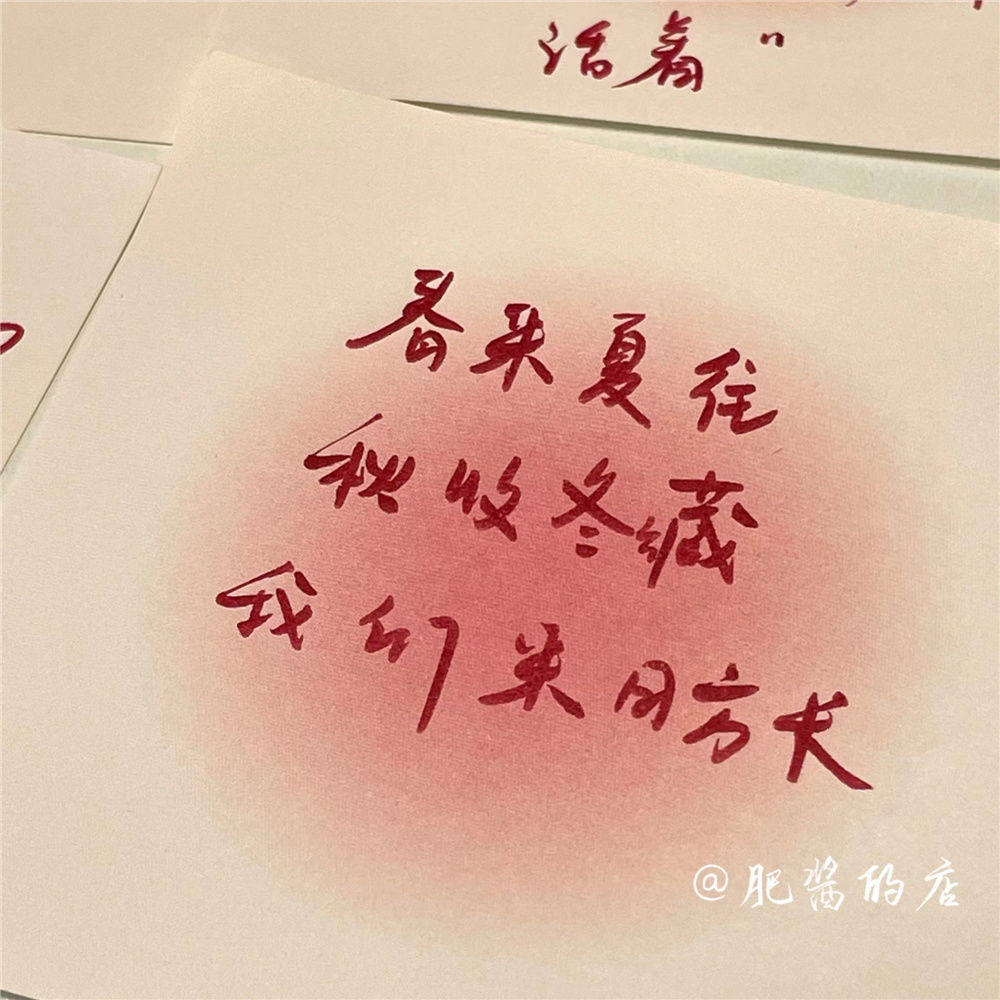 活着”
春来夏往
秋收冬藏
我们来日方长
@肥酱的店